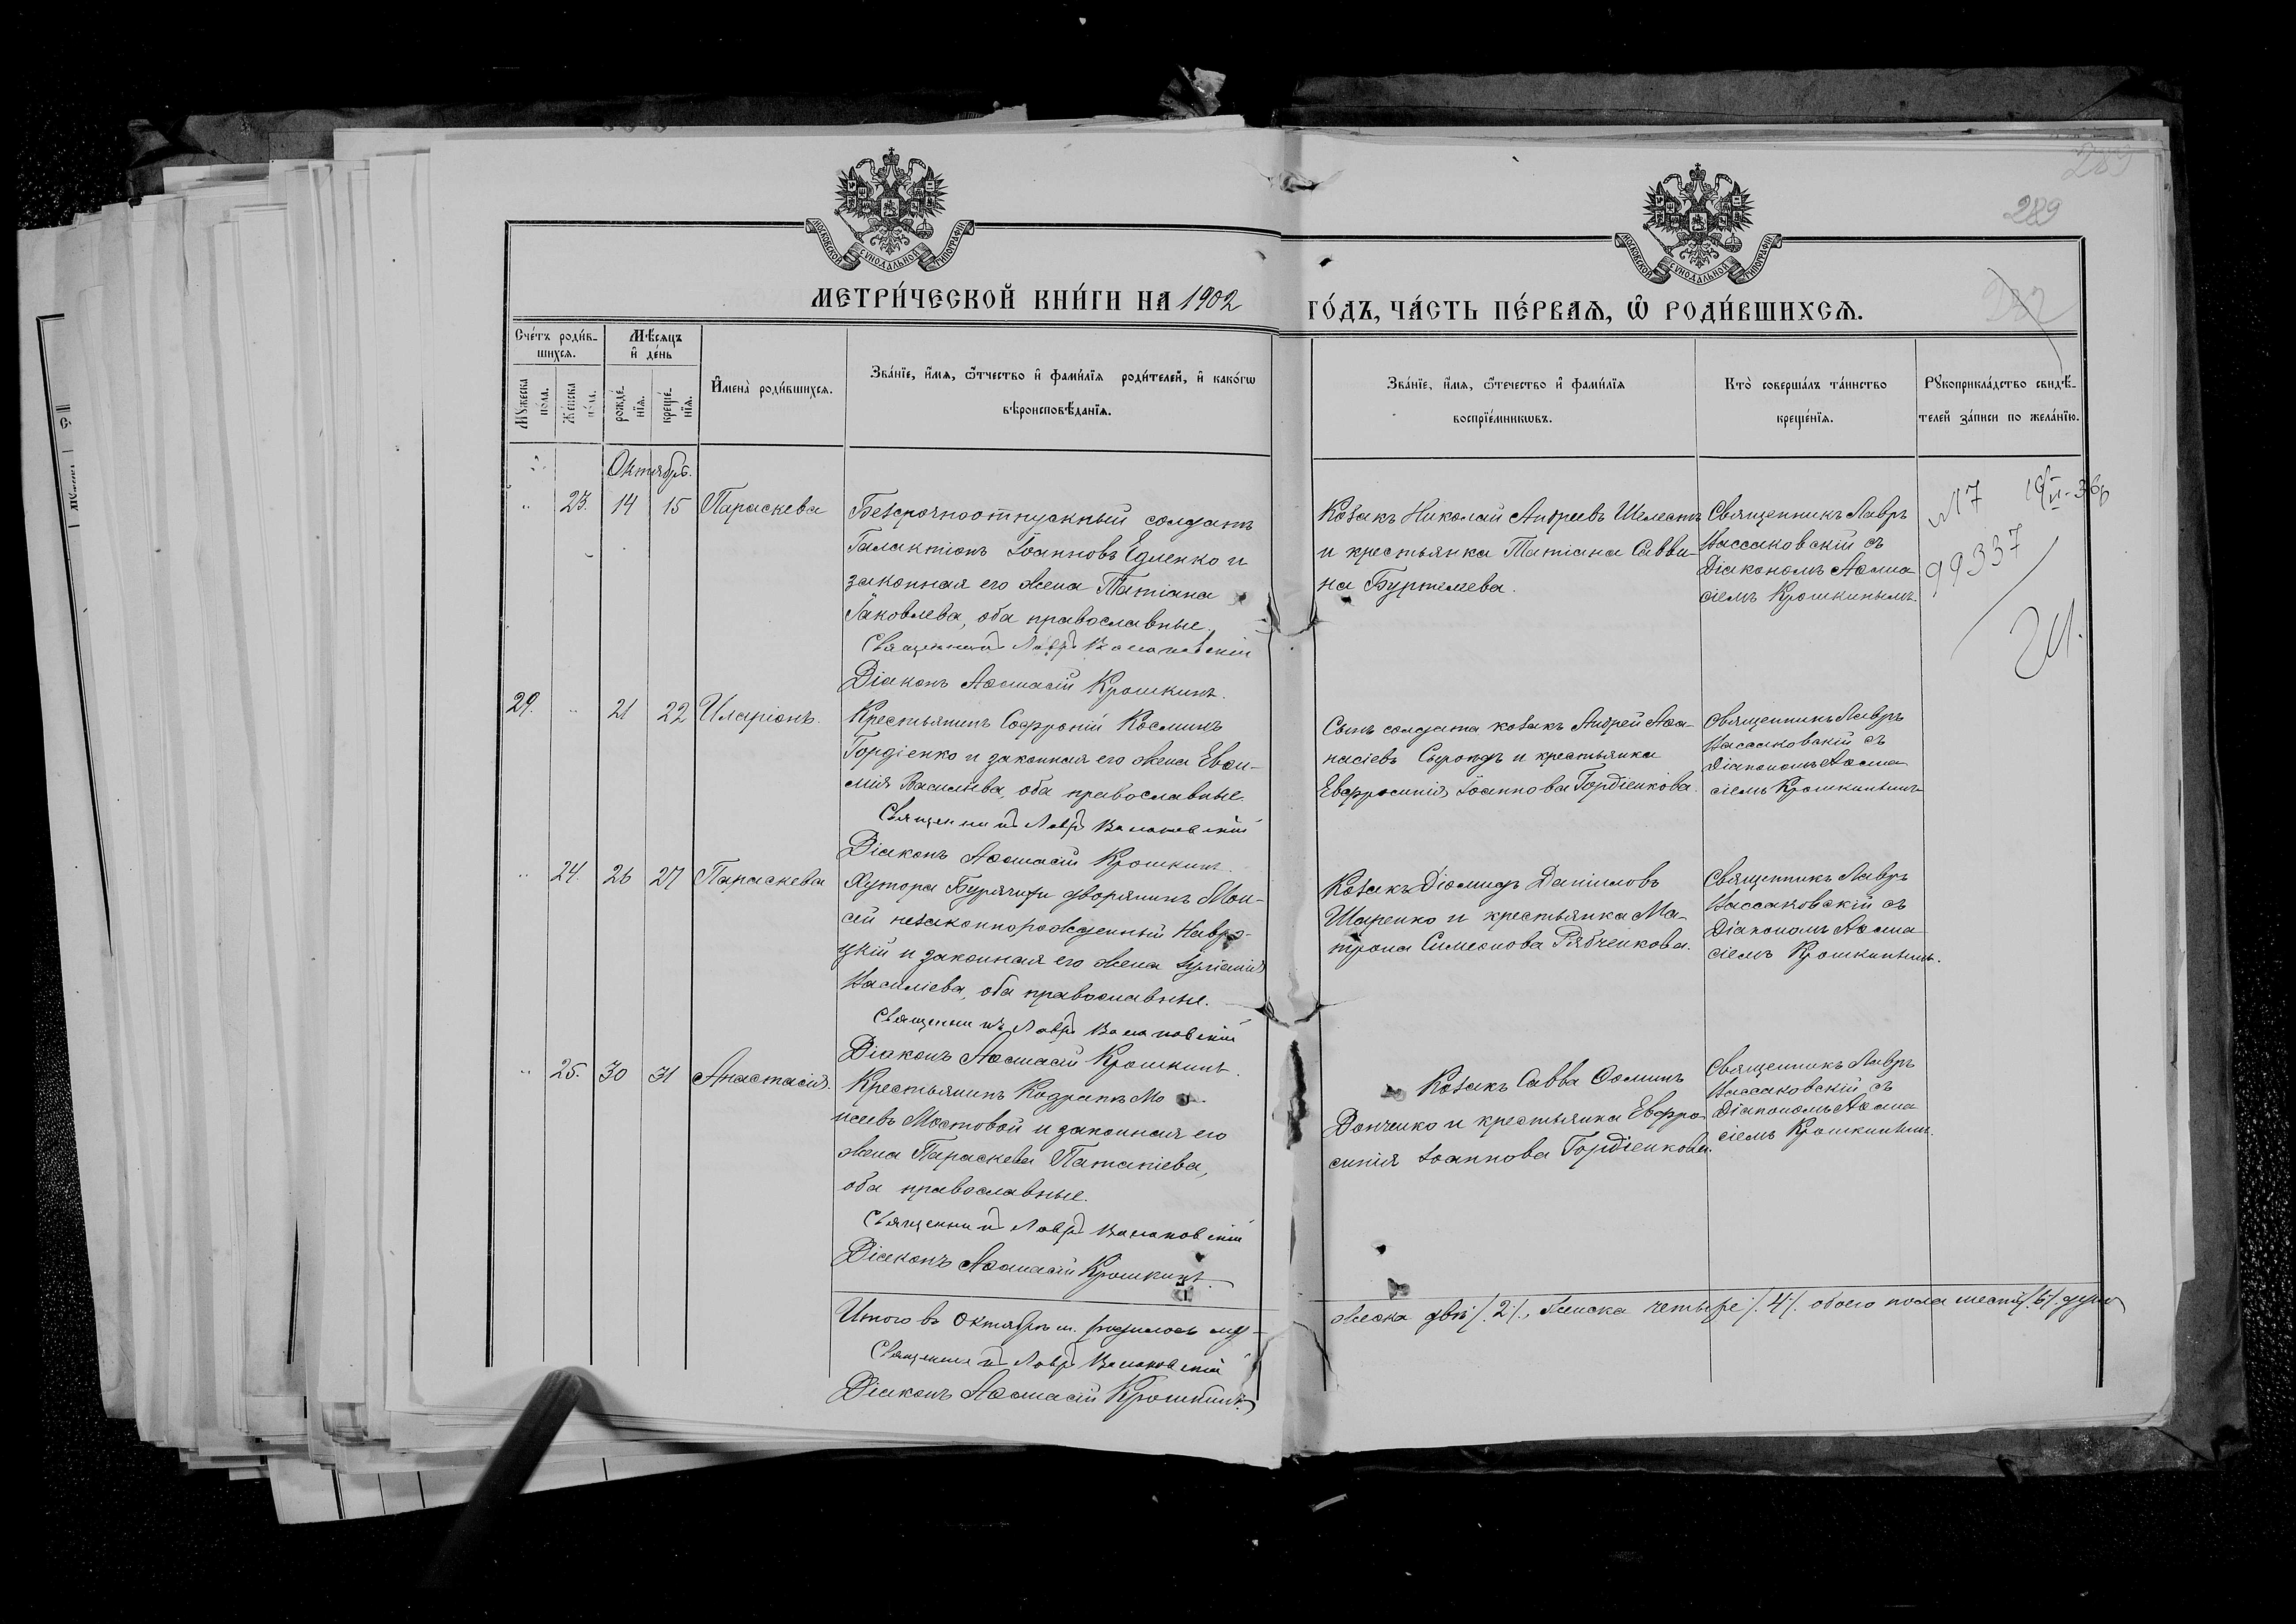 289
289
МОСКОВСКОЙ СѴНОДАЛЬНОЙ ТИПОГРАФІИ
МОСКОВСКОЙ СѴНОДАЛЬНОЙ ТИПОГРАФІИ
МЕТРИ́ЧЕСКОЙ КНИ́ГИ НА 1902
ГО́ДЪ, ЧА́СТЬ ПЕ́РВАѦ, Ѡ҆ РОДИ́ВШИХСѦ.
Сче́тъ роди́в-
шихсѧ.
Мѣ́сѧцъ
и҆ де́нь
Мꙋжеска
по́ла.
Же́нска
по́ла.
рожде́-
нїѧ.
креще́-
нїѧ.
И҆мена̀ роди́вшихсѧ.
Зва́нїе, и҆́мѧ, ѻ҆́тчество и҆ фами́лїѧ роди́телей, и҆ како́гѡ
вѣроисповѣ́данїѧ.
Зва́нїе, и҆́мѧ, ѻ҆́течество и҆ фами́лїѧ
воспрїе́мникѡвъ.
Кто̀ соверша́лъ та́инство
креще́нїѧ.
Рꙋкоприкла́дство свидѣ́-
телей за́писи по жела́нїю.
Октябрь.
" 23. 14 15 Параскева
Безсрочноотпускный солдатъ
Галактіонъ Іоанновъ Едленко и
законная его жена Татіана
Іаковлева, оба православные.
Священникъ Лавръ Вассаковскій
Діаконъ Аѳанасій Крошкинъ.
Козакъ Николай Андреевъ Шелестъ
и крестьянка Татіана Савви-
на Буртелева.
Священникъ Лавръ
Вассаковскій съ
Діакономъ Аѳана
сіемъ Крошкинымъ.
№17
99337
29. " 21 22 Иларіонъ.
Крестьянинъ Софроній Косминъ
Гордіенко и законная его жена Евѳи-
мія Васильева, оба православные.
Священникъ Лавръ Вассаковскій
Діаконъ Аѳанасій Крошкинъ.
Сынъ солдата козакъ Андрей Аѳа-
насіевъ и крестьянка
Евфросинія Іоаннова Гордіенкова.
Священникъ Лавръ
Вассаковскій съ
Діакономъ Аѳана
сіемъ Крошкинымъ
" 24. 26 27 Параскева
Хутора дворянинъ Мои-
сей незаконнорожденный Навро-
цкій и законная его жена Іуліанія
Василіева, оба православные.
Священникъ Лавръ Вассаковскій
Діаконъ Аѳанасій Крошкинъ.
Козакъ Діомидъ Даніиловъ
Шаренко и крестьянка Ма-
трона Симеонова Рябченкова.
Священникъ Лавръ
Вассаковскій съ
Діакономъ Аѳана
сіемъ Крошкинымъ.
" 25. 30 31 Анастасія.
Крестьянинъ Кодратъ Мо
исеевъ Мостовой и законная его
жена Параскева Патапіева,
оба православные.
Священникъ Лавръ Вассаковскій
Діаконъ Аѳанасій Крошкинъ.
Козакъ Савва Ѳоминъ
Донченко и крестьянка Евфро
синія Іоаннова Гордіенкова.
Священникъ Лавръ
Вассаковскій съ
Діакономъ Аѳана
сіемъ Крошкинымъ.
Итого въ Октябрѣ м. родилось му-
жеска двѣ /.2/., женска четыре /.4/. обоего пола шесть /.6/. душъ
Священникъ Лавръ Вассаковскій
Діаконъ Аѳанасій Крошкинъ.